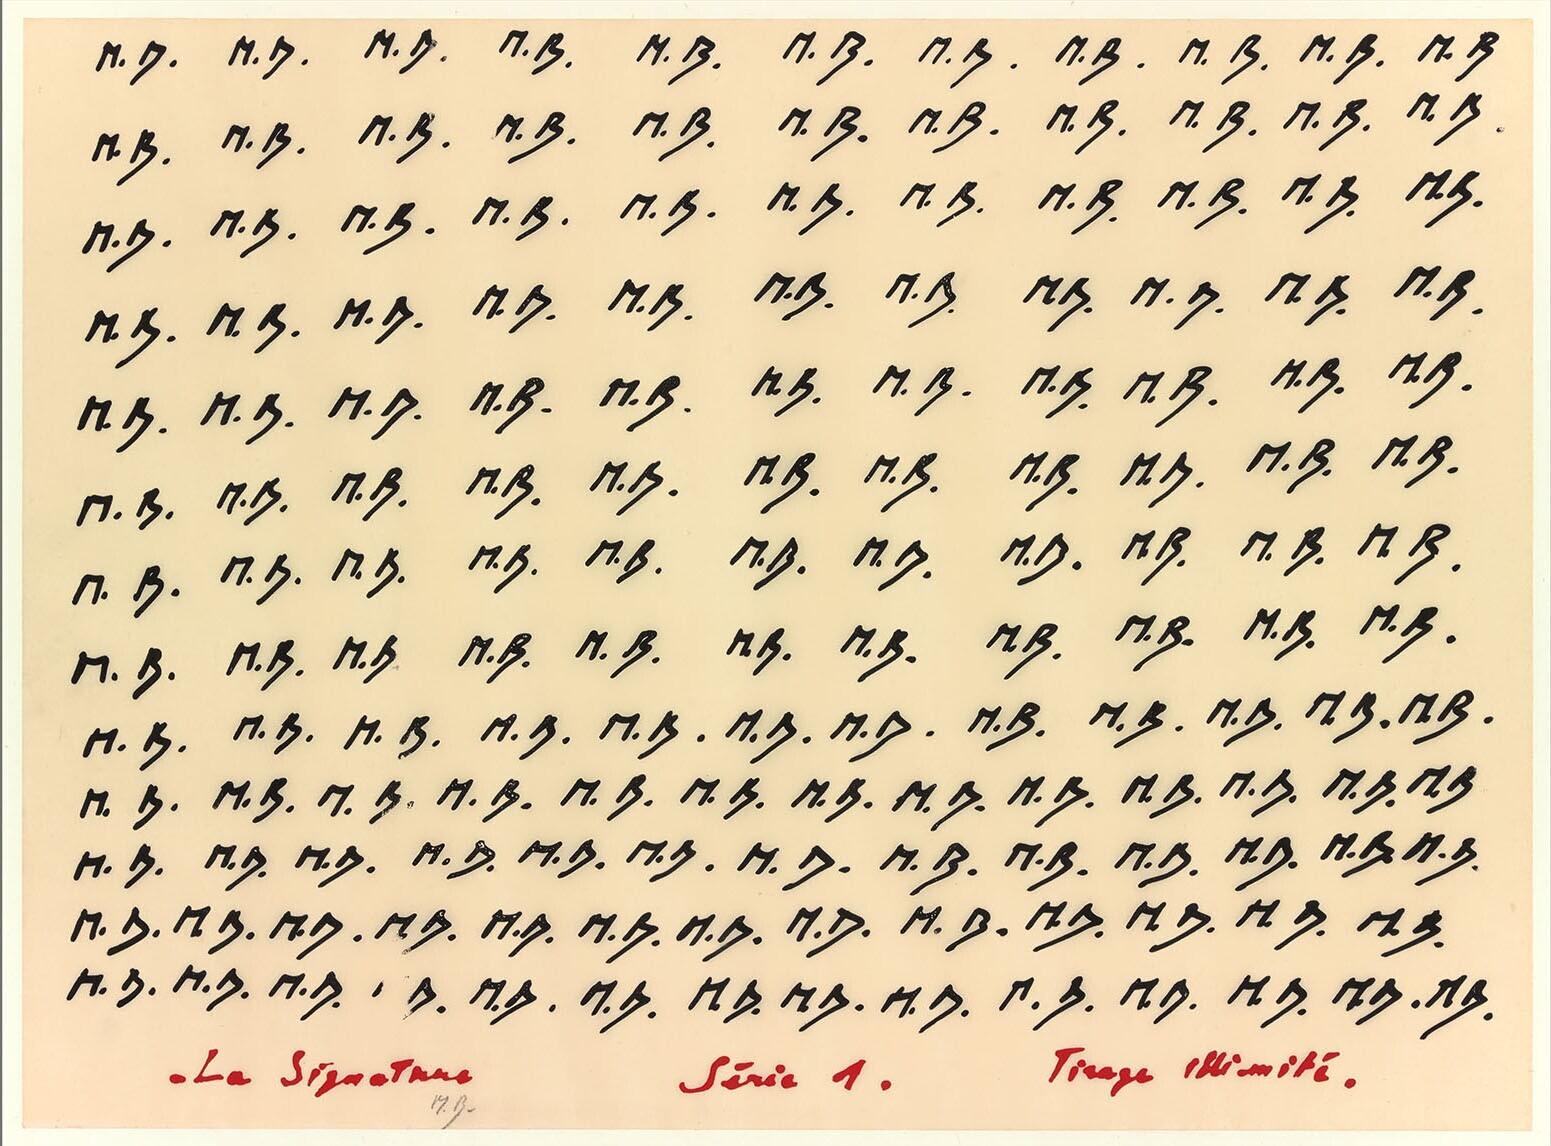 M.B. M.B. M.B. M.B. M.B. M.B. M.B. M.B. M.B. M.B. M.B
M.B. M.B. M.B. M.B. M.B. M.B. M.B. M.B. M.B. M.B. M.B.
M.B. M.B. M.B. M.B. M.B. M.B. M.B. M.B. M.B. M.B. M.B.
M.B. M.B. M.B. M.B. M.B. M.B. M.B. M.B. M.B. M.B. M.B.
M.B. M.B. M.B. M.B. M.B. M.B. M.B. M.B. M.B. M.B. M.B.
M.B. M.B. M.B. M.B. M.B. M.B. M.B. M.B. M.B. M.B. M.B.
M.B. M.B. M.B. M.B. M.B. M.B. M.B. M.B. M.B. M.B. M.B.
M.B. M.B. M.B M.B. M.B. M.B. M.B. M.B. M.B. M.B. M.B.
M.B. M.B. M.B. M.B. M.B. M.B. M.B. M.B. M.B. M.B. M.B. M.B.
M.B. M.B. M.B. M.B. M.B. M.B. M.B. M.B. M.B. M.B. M.B. M.B. M.B
M.B. M.B. M.B. M.B. M.B. M.B. M.B. M.B. M.B. M.B. M.B. M.B. M.B.
M.B. M.B. M.B. M.B. M.B. M.B. M.B. M.B. M.B. M.B. M.B. M.B. M.B.
M.B. M.B. M.B. B. M.B. M.B. M.B. M.B. M.B. M.B. M.B. M.B. M.B. M.B.
La Signature Série 1. Tirage illimité.
M.B.